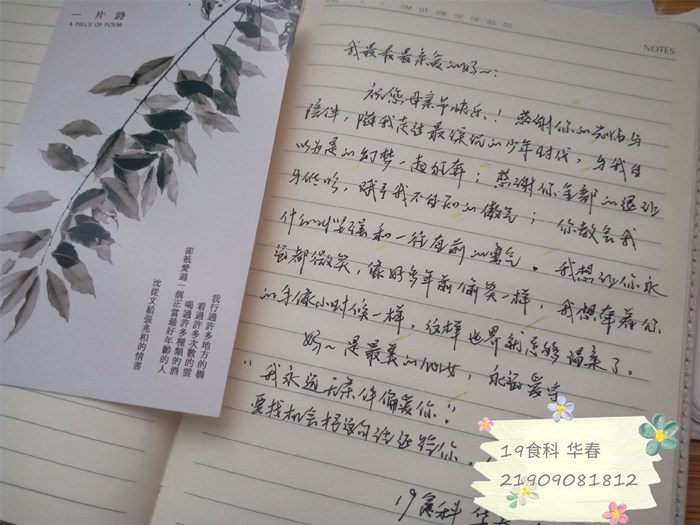 一片詩
A PIECE OF POEM
我行過許多地方的橋
看過許多次數的雲
喝過許多種類的酒
卻祇愛過一個正當最好年齡的人
沈從文給張兆和的情書
NOTES
我最最最亲爱的妈~:
祝您母亲节快乐!感谢你的与
陪伴,陪我走过最的少年时代,与我自
以为是的幻梦一起狂奔;感谢你全部的退让
与,赋予我不自知的傲气;你教会我
什么叫坚强和一往直前的勇气。我想让你永
远都微笑,像好多年前偷笑一样,我想牵着你
的手像小时候一样,这样世界就足够温柔了。
妈~是最美的,永远
“我永远无条件偏爱你。”
要找机会把这句话还给你
19食科 华
19食科 华春
21909081812